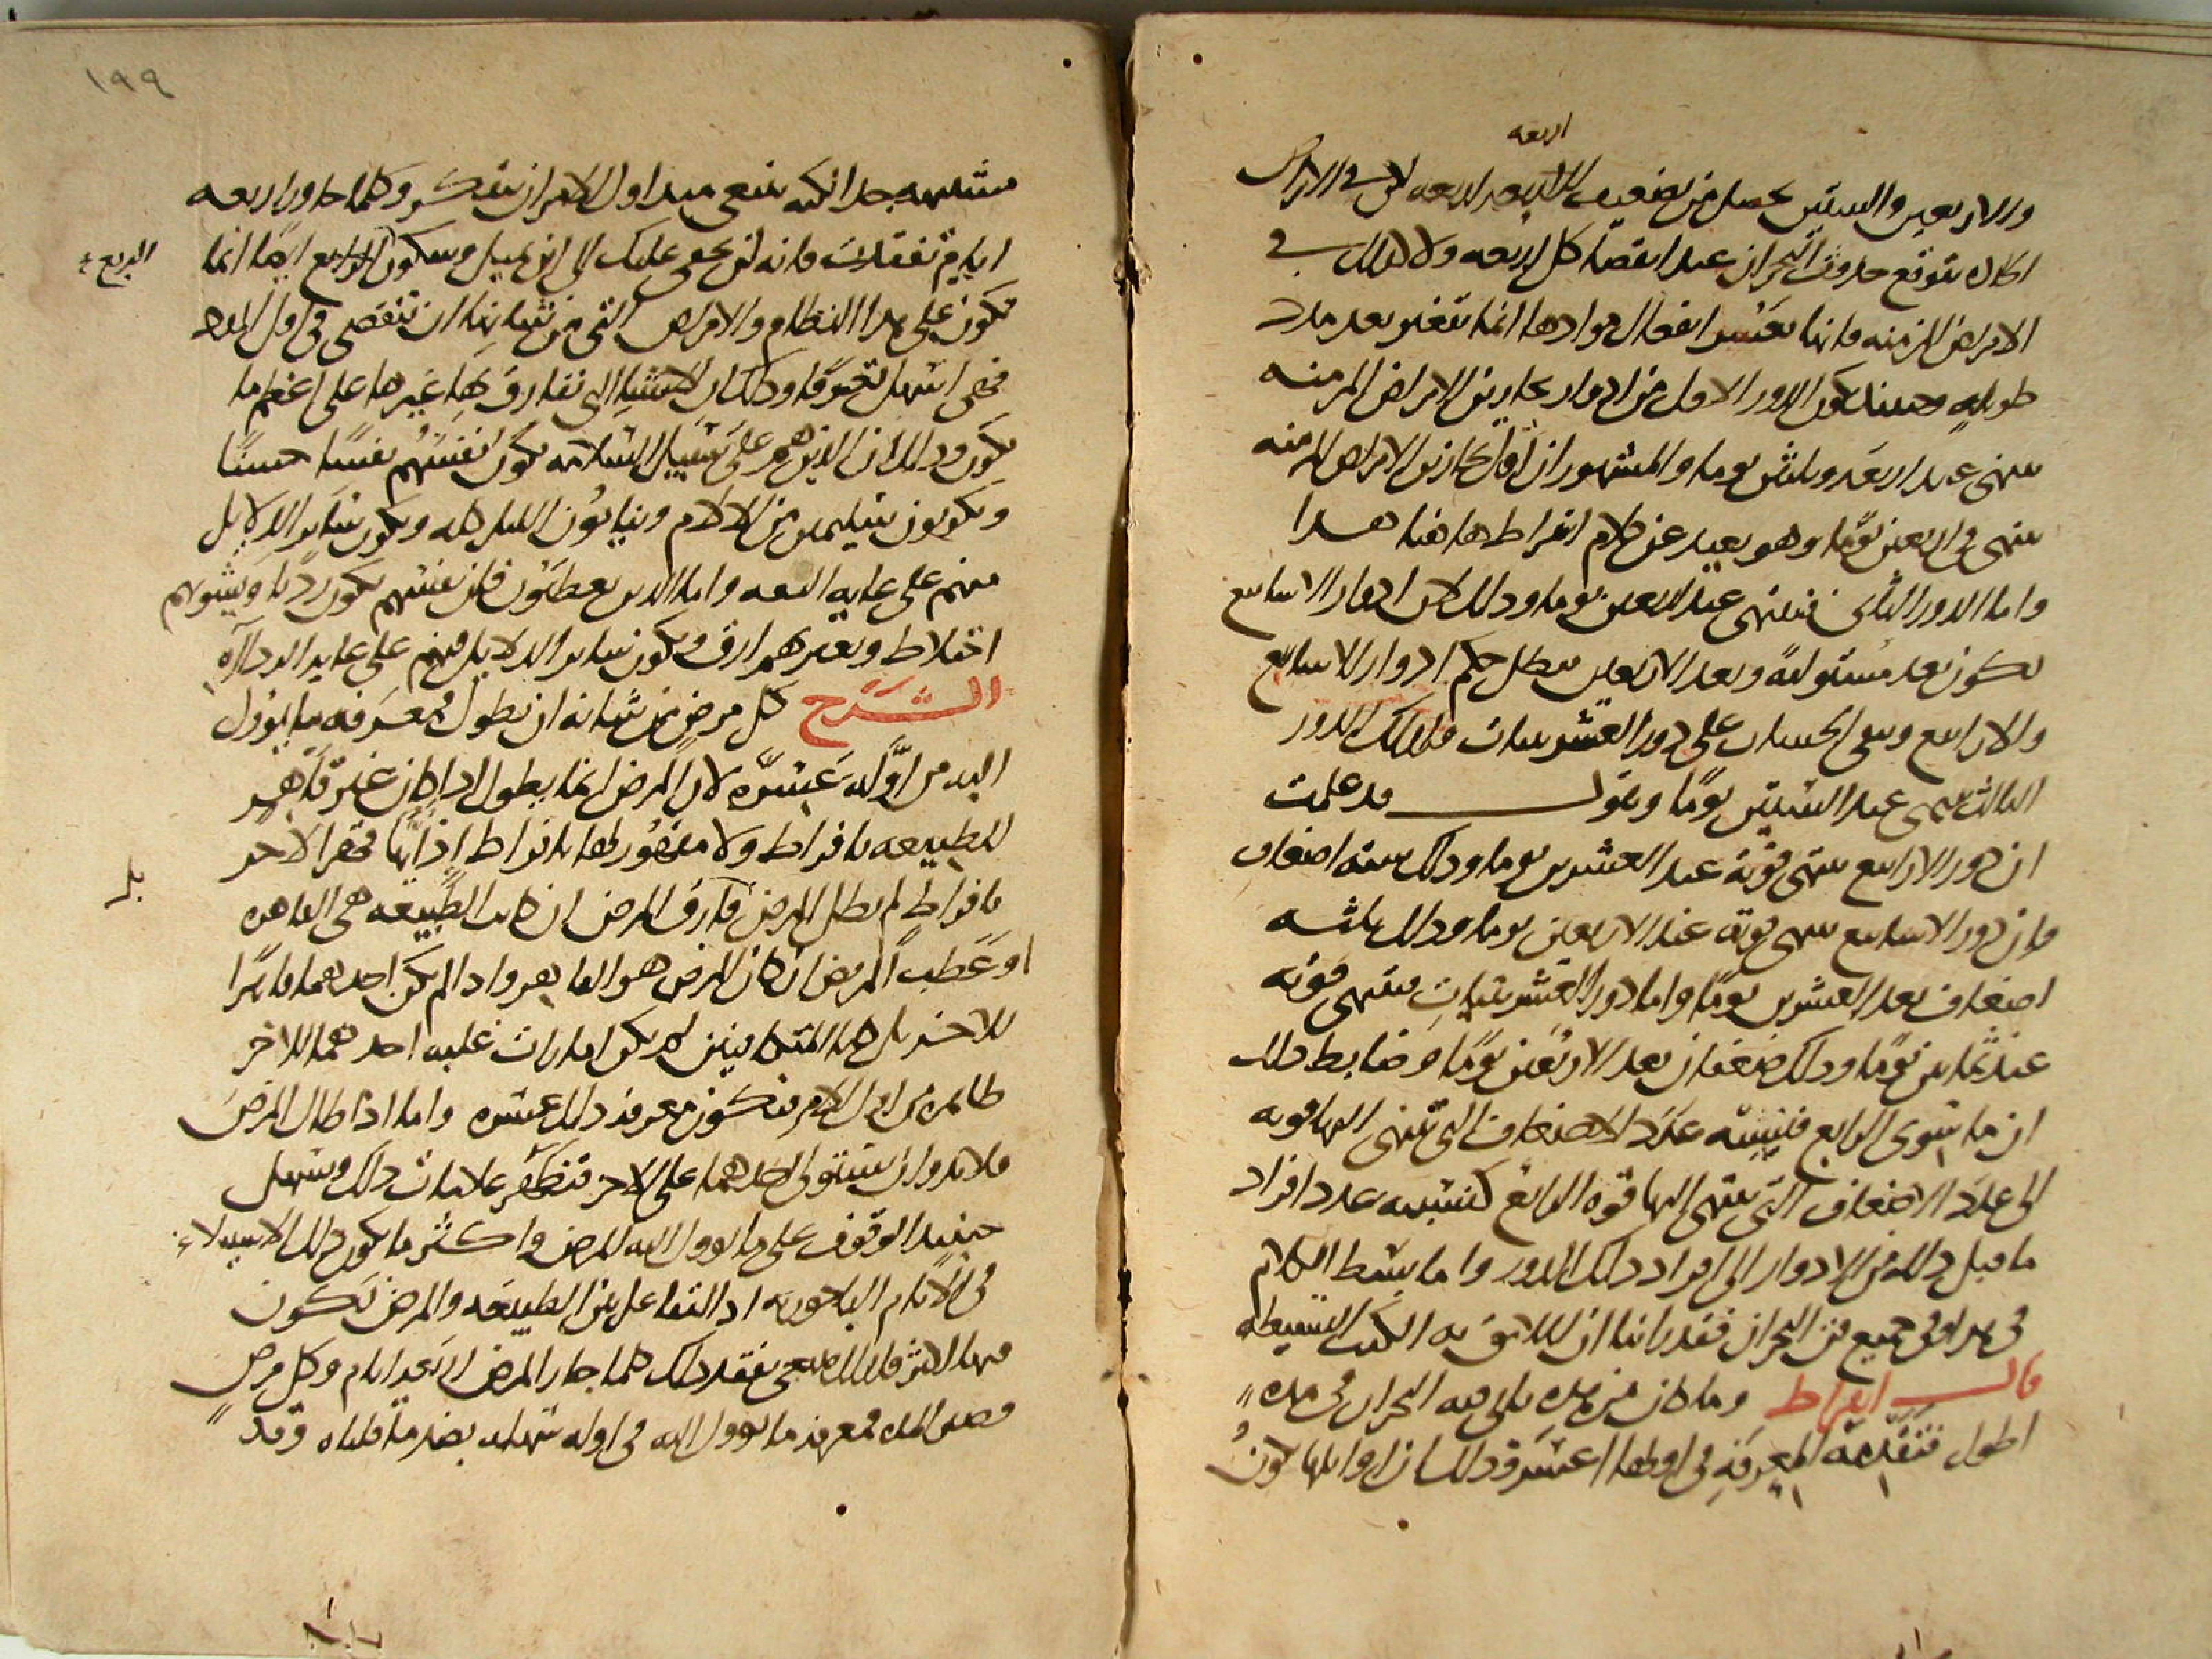 اربعه
والاربعين والستين يحصل من تضعيف اربعه لان في الامراض
الحاده يتوقع حدوث البحران عند انقضا كل اربعه ولا كذلك في
الامراض المزمنه فانها بعسر انفعال موادها انما تتغير بعد مدد
طويله وحينئذ يكون الدور الاول من ادوار بحارين الامراض المزمنه
ينتهى عند اربعه وثلثين يوما والمشهور ان اول بحارين الامراض المزمنه
ينتهى فى اربعين يوما وهو بعيد عن كلام ابقراط هاهنا هذا
واما الدور الثانى فينتهى عند الاربعين يوما وذلك لان ادوار الاسابيع
تكون بعد مستوليةً وبعد الاربعين يبطل حكم ادوار الاسابيع
والارابيع ويبقى الحساب على دور العشرينات فلذلك الدور
الثالث ينتهى عند الستين يومًا ونقول قد علمت
ان دور الارابيع ينتهى قوته عند العشرين يوما وذلك ستة اضعاف
وان دور الاسابيع ينتهى قوته عند الاربعين يوما وذلك ثلثه
اضعاف بعد العشرين يومًا واما دور العشرينيات فينتهى قوته
عند ثمانين يومًا وذلك ضعفان بعد الاربعين يومًا وضابط ذلك
ان ما سوى الرابع فنسبه عدد الاضعاف التى تنتهى اليها قوته
الى عدد الاضعاف التى ينتهى اليها قوه الرابع كنسبه عدد افراد
ما قبل ذلك من الادوار الى افراد ذلك الدور واما بسط الكلام
فى هذا وفى جميع فن البحران فقد راينا ان اللايق به الكتب البسيطه
قال ابقراط وما كان من هذه ياتى فيه البحران فى مده
اطول فتقدمة المعرفة فى اولها اعسر وذلك ان اوايلها تكونُ
١٩٩
متشابهه جدا لكنه ينبغى منذ اول الامر ان تتفكر وكلما جاوز اربعه
ايام تفقدت فانه لن يخفى عليك الى اين يميل وسكون الرابع ايضا انما
الربع
يكون على هذا النظام والامراض التى من شانها ان تنقضى فى اقل المده
فهى اسهل تعرفًا وذلك ان الاشياء التى تفارق بها غيرها على اعظم ما
يكون وذلك ان الذين هم على سبيل السلامه يكون نفسهم نفسًا حسنًا
ويكونون سليمين من الالام وينامون الليل كله ويكون ساير الدلايل
منهم على غايه الثقه واما الذين يعطبون فان نفسهم يكون رديا ويشوبهم
اختلاط ويعتريهم ارق ويكون ساير الدلايل منهم على غايه الرداءه
الشرح كل مرض من شانه ان يطول فمعرفه ما يؤول
اليه من اوّله عَسِرَه لان المرض انما يطول اذا كان غير قاهر
للطبيعه بافراط ولا مقهور لها بافراط اذ ايهما قهر الاخر
بافراط لم يطل المرض فارق المرض ان كانت الطبيعه هى القاهره
بل
او عطب المريض ان كان المرض هو القاهر واذا لم يكن احدهما قاهرًا
للاخر بل كانا كالمتكافيين لم يكن امارات غلبه احدهما للاخر
ظاهره من اول الامر فتكون معرفه ذلك عسره واما اذا طال المرض
فلا بد وان يستولى احدهما على الاخر فتظهر علامات ذلك ويسهل
حينيذ الوقوف على ما يوول اليه المرض واكثر ما يكون ذلك الاستيلاء
فى الايام الباحوريه اذ التفاعل بين الطبيعه والمرض تكون
فيها اكثر فلذلك ينبغى تفقد ذلك كلما جاز المرض اربعه ايام وكل مرض
قصير المده فمعرفه ما يوول اليه فى اوله سهله بضد ما قلناه وقد